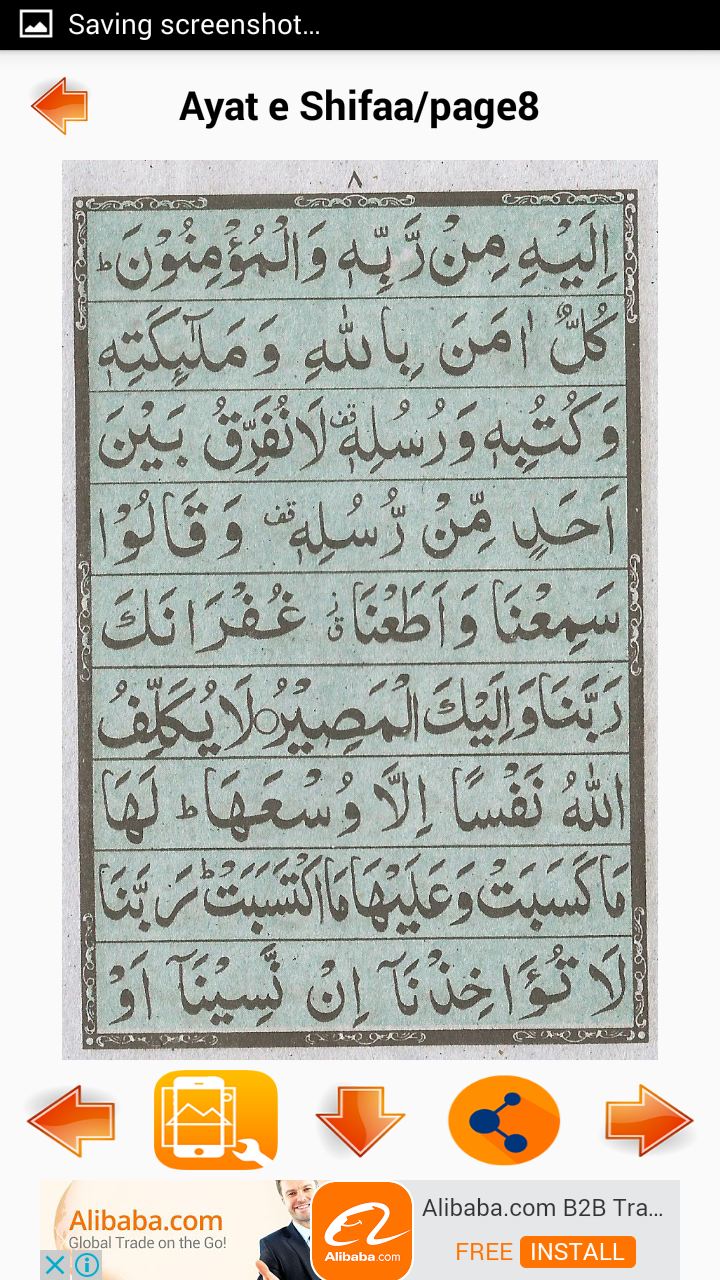 Saving screenshot...
Ayat e Shifaa/page8
٨
اِلَيْهِ مِنْ رَّبِّهٖ وَالْمُؤْمِنُوْنَ ؕ
كُلٌّ اٰمَنَ بِاللّٰهِ وَمَلٰٓئِكَتِهٖ
وَكُتُبِهٖ وَرُسُلِهٖ قف لَا نُفَرِّقُ بَيْنَ
اَحَدٍ مِّنْ رُّسُلِهٖ قف وَقَالُوْا
سَمِعْنَا وَاَطَعْنَا ق ز غُفْرَانَكَ
رَبَّنَا وَاِلَيْكَ الْمَصِيْرُ ○ لَا يُكَلِّفُ
اللّٰهُ نَفْسًا اِلَّا وُسْعَهَا ؕ لَهَا
مَا كَسَبَتْ وَعَلَيْهَا مَا اكْتَسَبَتْ ؕ رَبَّنَا
لَا تُؤَاخِذْنَآ اِنْ نَّسِيْنَآ اَوْ
Alibaba.com
Global Trade on the Go!
Alibaba.com
Alibaba.com B2B Tra...
FREE INSTALL